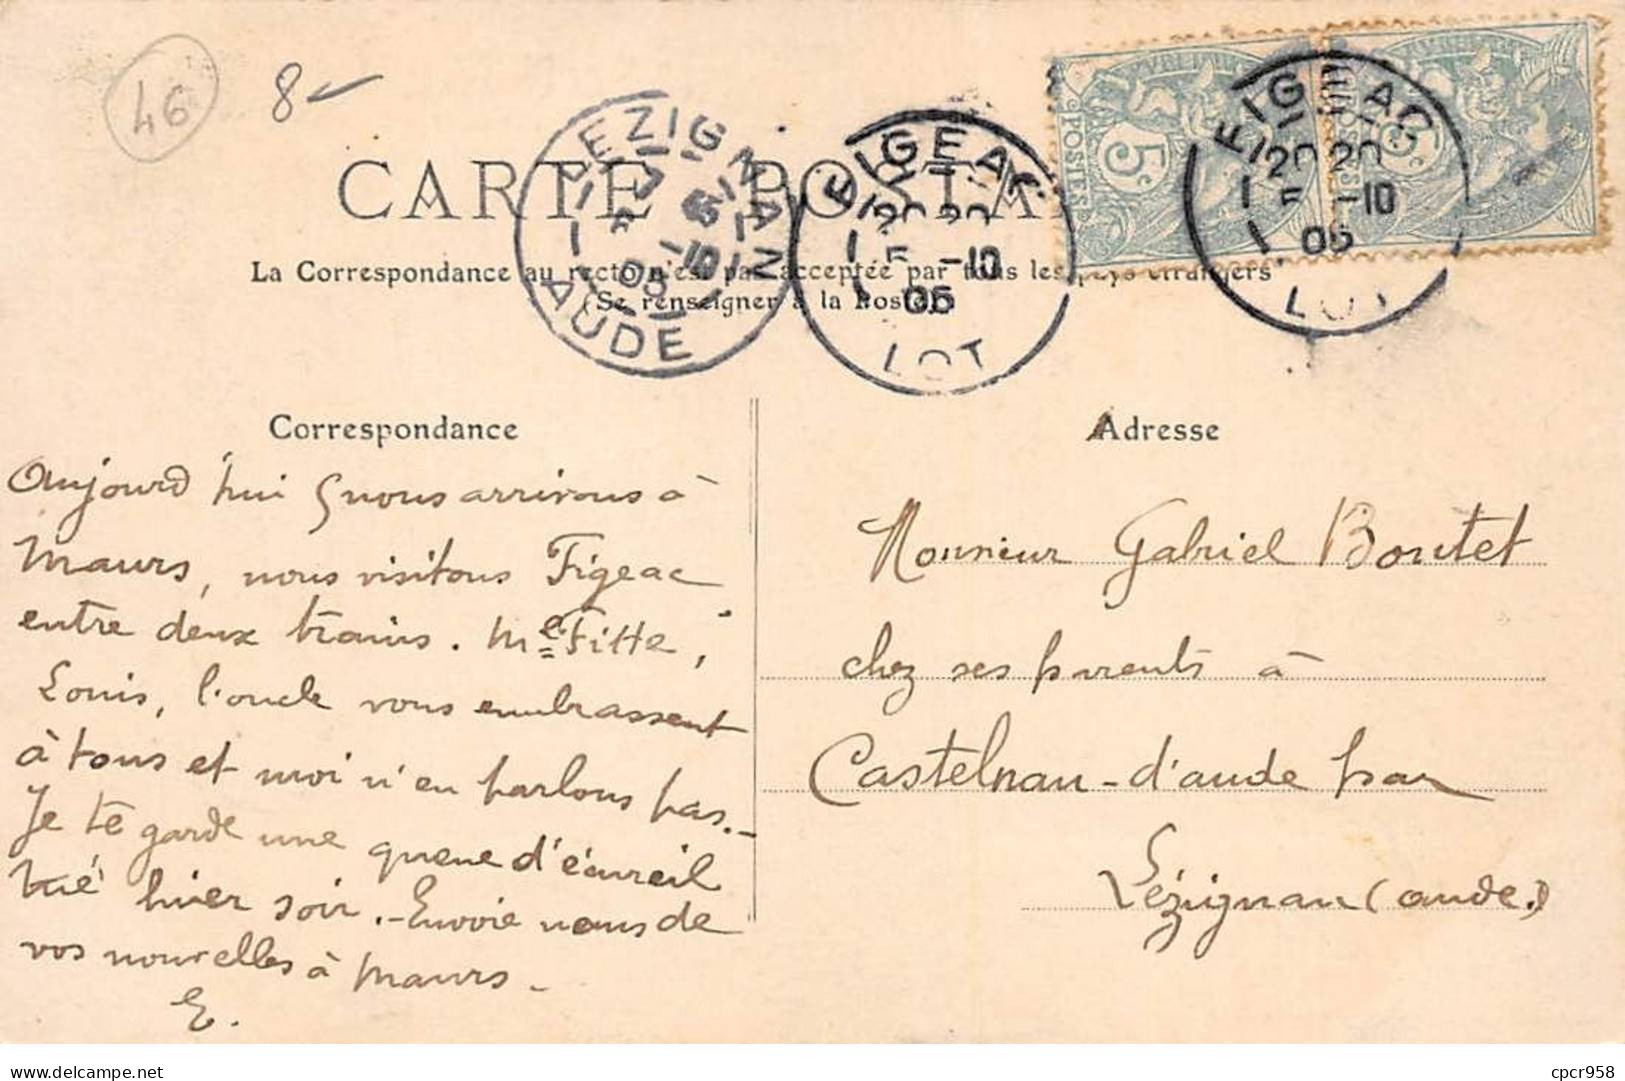 46
8
CARTE POSTALE
La Correspondance au recto n'est pas acceptée par tous les pays étrangers
(Se renseigner à la Poste)
LEZIGNAN
5 -10
05
AUDE
FIGEAC
20 20
5 -10
05
LOT
POSTES
5c
FIGEAC
20 20
5 -10
05
LOT
Correspondance
Aujourd'hui 5 nous arrivons à
Maurs, nous visitons Figeac
entre deux trains. Me Fitte,
Louis, l'oncle vous embrassent
à tous et moi n'en parlons pas.-
Je te garde une queue d'écureil
tué hier soir.- Envoie nous de
vos nouvelles à Maurs -
E.
Adresse
Monsieur Gabriel Boutet
chez ses parents à
Castelnau-d'aude par
Lézignan (aude.)
cpcr958